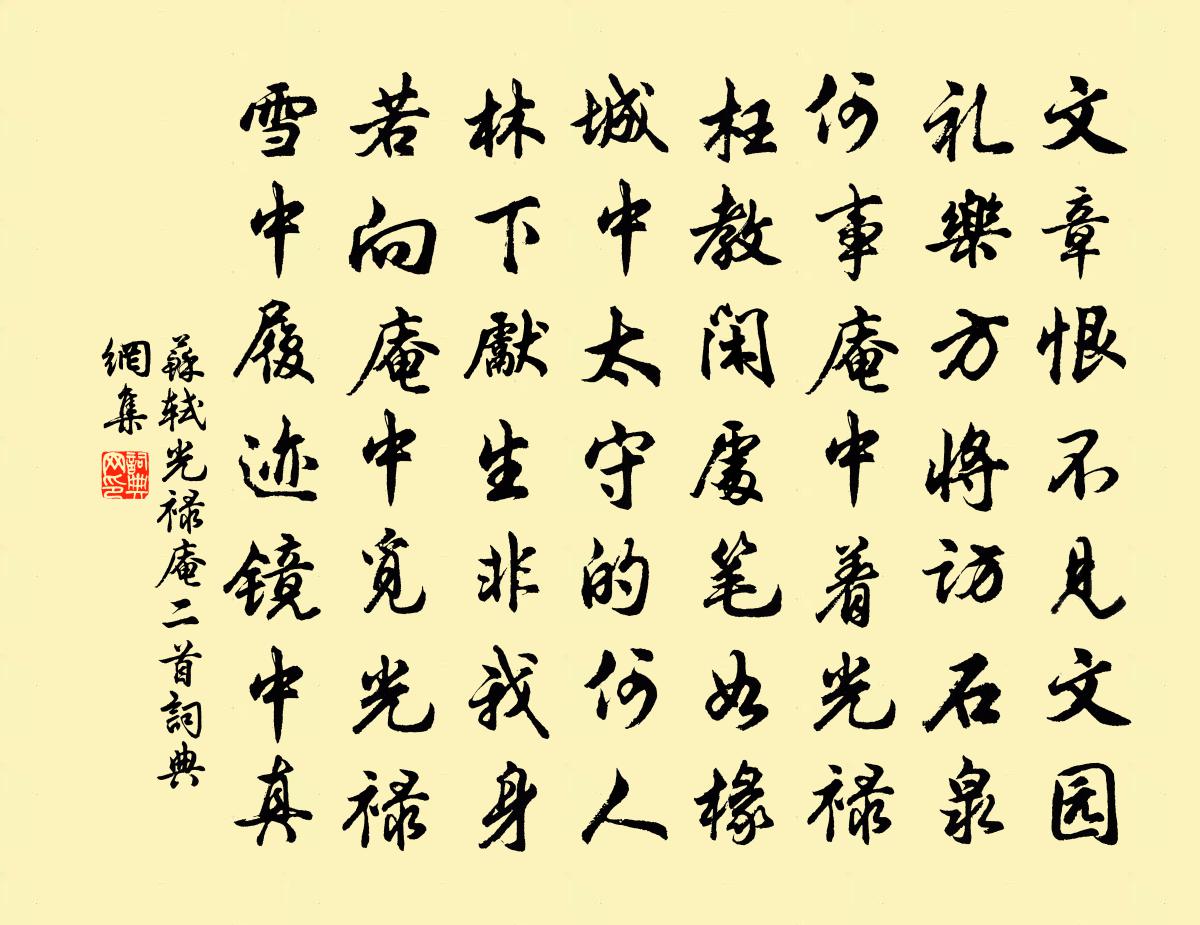 文章恨不见文园
礼樂方将访石泉
何事庵中着光禄
枉教闲處笔如椽
城中太守的何人
林下獻生非我身
若向庵中觅光禄
雪中履迹镜中真
蘇軾光禄庵二首詞典
網集
詞典
网印